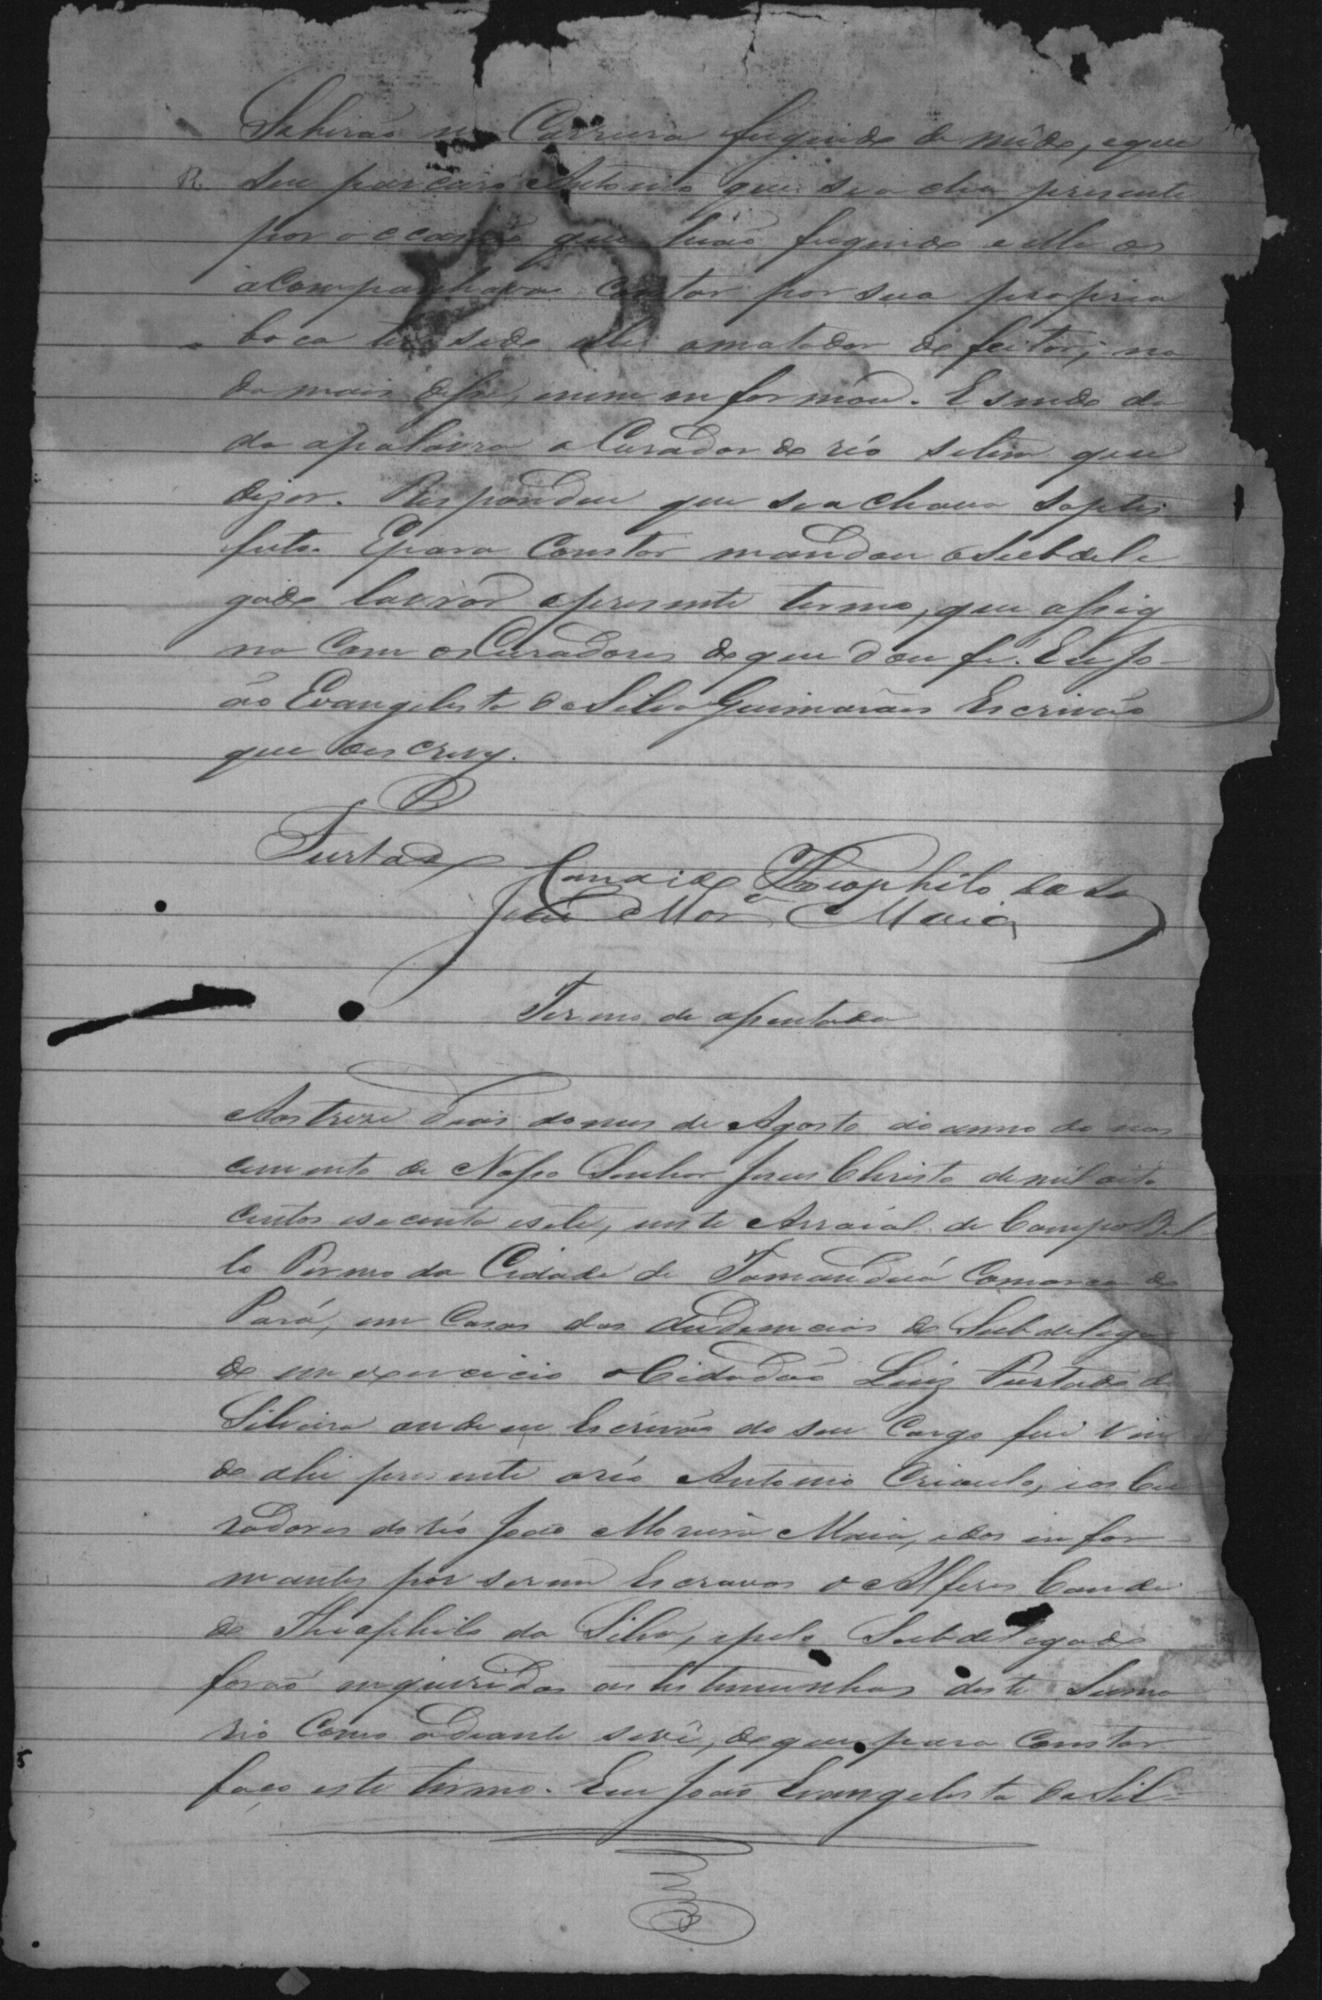 Sahirão na Carrera fugindo de mêdo, e que
seu parcero Antonio que se acha presente
por occasião que hião fugindo e elle os
acompanhava contar por sua propria
boca ter sido elle o matador do feitor; na
da mais disse, nem informou. E sendo da
da apalavra o Curador do réo se tem que
dizer. Respondeu que se achava satis
feito. E para Constar mandou o Subdele
gado lavrar o presente termo, que assig
na com os Curadores do que dou fé. Eu Jo-
ão Evangelista da Silva Guimarães Escrivão
que o escrevy.
Furtado
Candido Theophilo da Sa
João Mor.ª Maia
Termo de assentada
Aos treze dias do mes de Agosto do anno do nas
cimento de Nosso Senhor Jesus Christo de mil oito
centos e secenta e sete, neste Arraial de Campo Bel
lo Termo da Cidade de Tamanduá Comarca do
Pará, em Casas das Audiencias do Subdelega
do em exercicio o Cidadão Luiz Furtado da
Silveira onde eu Escrivão do seu Cargo fui vin
do ahi presente o réo Antonio Crioulo, e os Cu
radores do réo João Moreira Maia, e dos infor-
mantes por serem Escravos o Alferes Candi
do Theophilo da Silva, e pelo Subdelegado
forão inqueridas as testemunhas deste Suma
rio Como adiante se vê, do que para Constar
faço este termo. Eu João Evangelista da Sil-